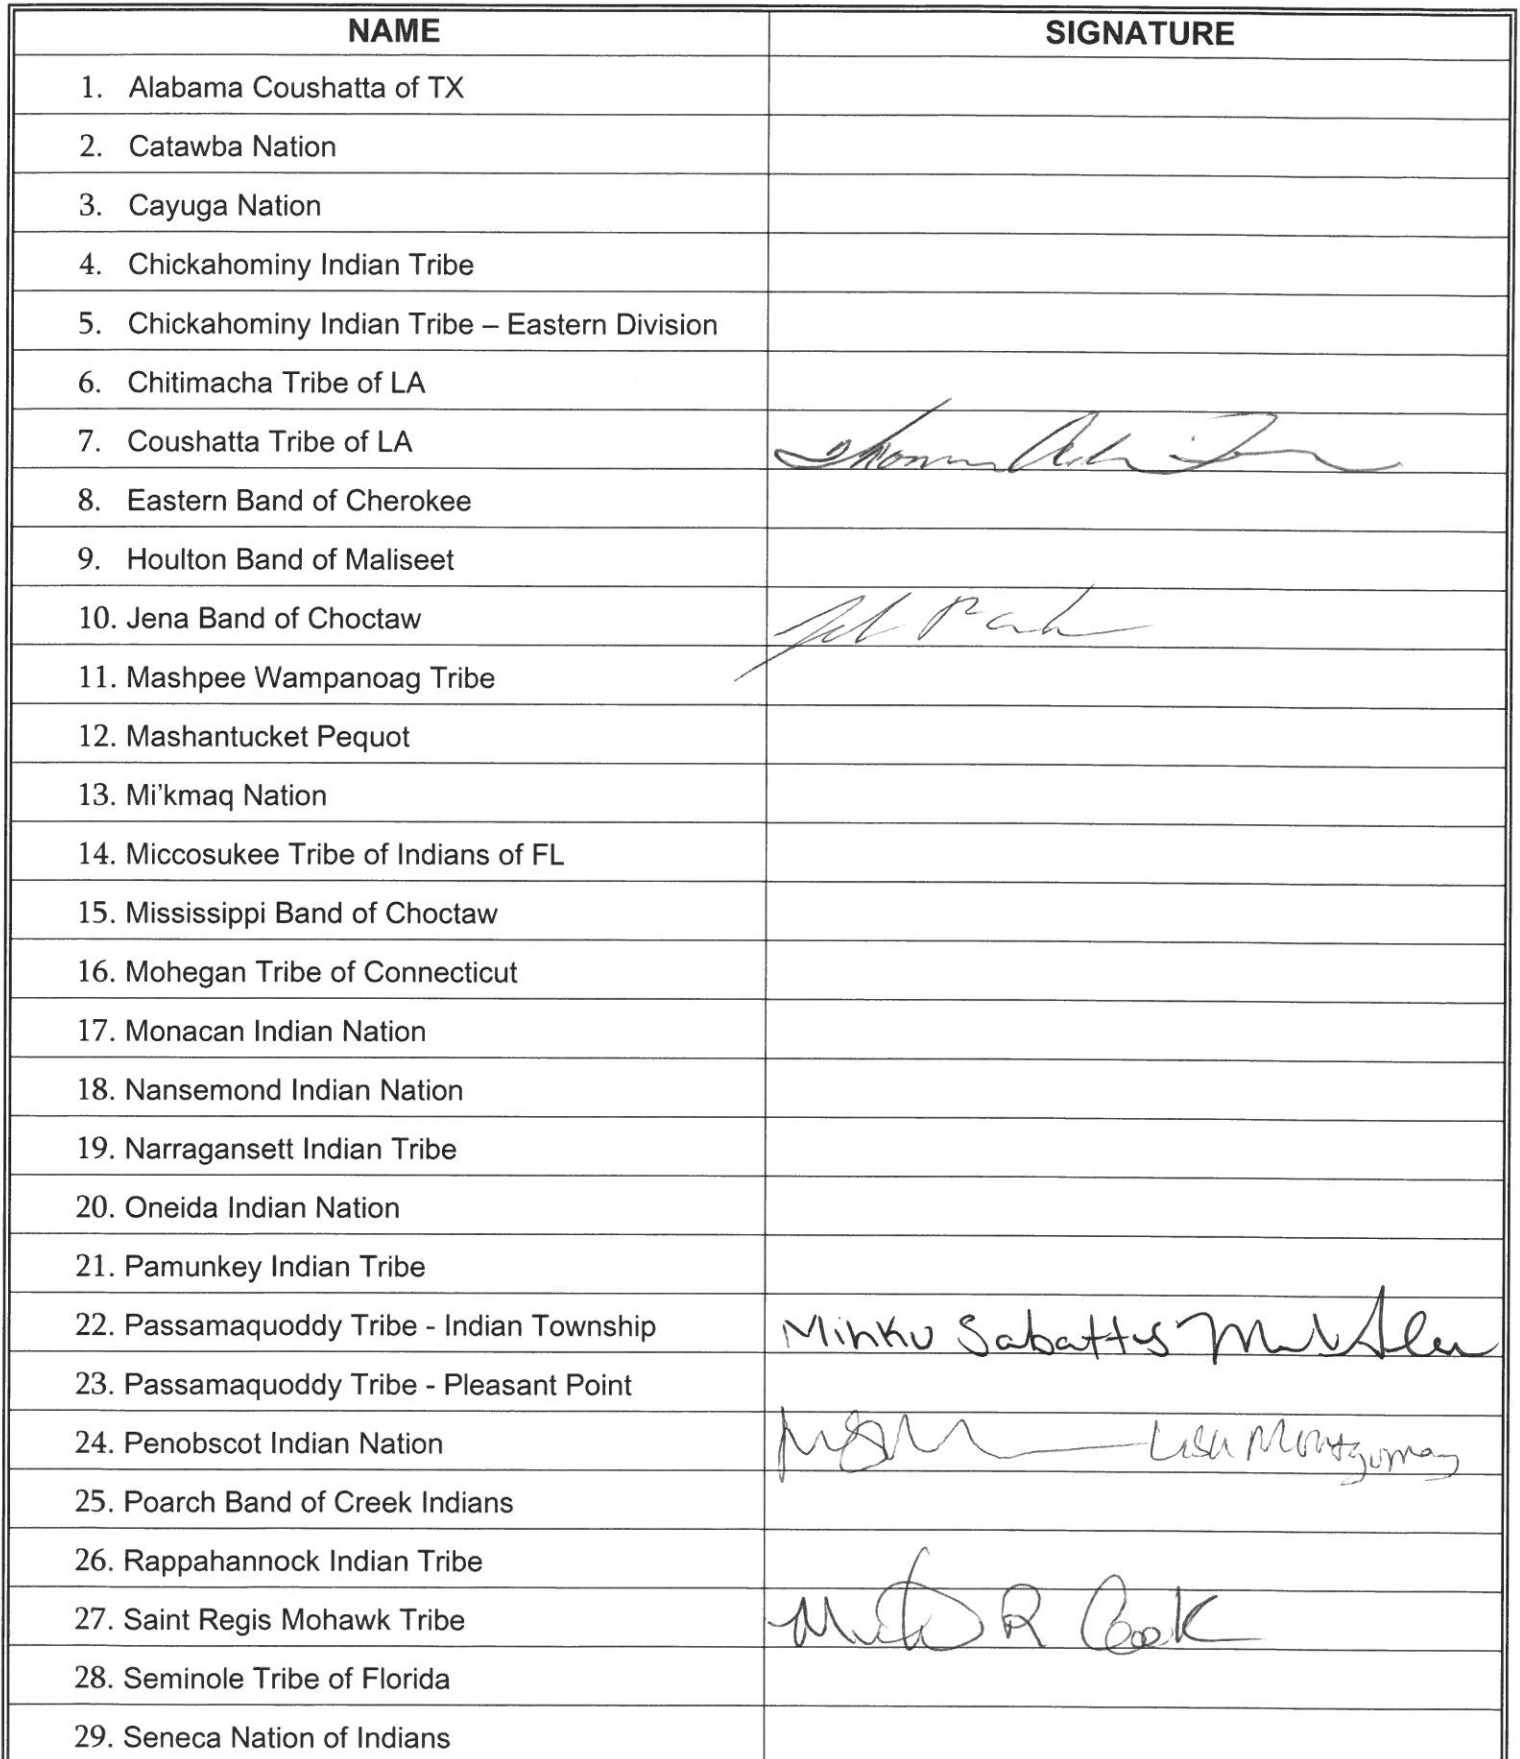 NAME SIGNATURE
1. Alabama Coushatta of TX
2. Catawba Nation
3. Cayuga Nation
4. Chickahominy Indian Tribe
5. Chickahominy Indian Tribe – Eastern Division
6. Chitimacha Tribe of LA
7. Coushatta Tribe of LA
8. Eastern Band of Cherokee
9. Houlton Band of Maliseet
10. Jena Band of Choctaw
11. Mashpee Wampanoag Tribe
12. Mashantucket Pequot
13. Mi'kmaq Nation
14. Miccosukee Tribe of Indians of FL
15. Mississippi Band of Choctaw
16. Mohegan Tribe of Connecticut
17. Monacan Indian Nation
18. Nansemond Indian Nation
19. Narragansett Indian Tribe
20. Oneida Indian Nation
21. Pamunkey Indian Tribe
22. Passamaquoddy Tribe - Indian Township Mihku Sabattus
23. Passamaquoddy Tribe - Pleasant Point
24. Penobscot Indian Nation Lisa Montgomery
25. Poarch Band of Creek Indians
26. Rappahannock Indian Tribe
27. Saint Regis Mohawk Tribe R Cook
28. Seminole Tribe of Florida
29. Seneca Nation of Indians